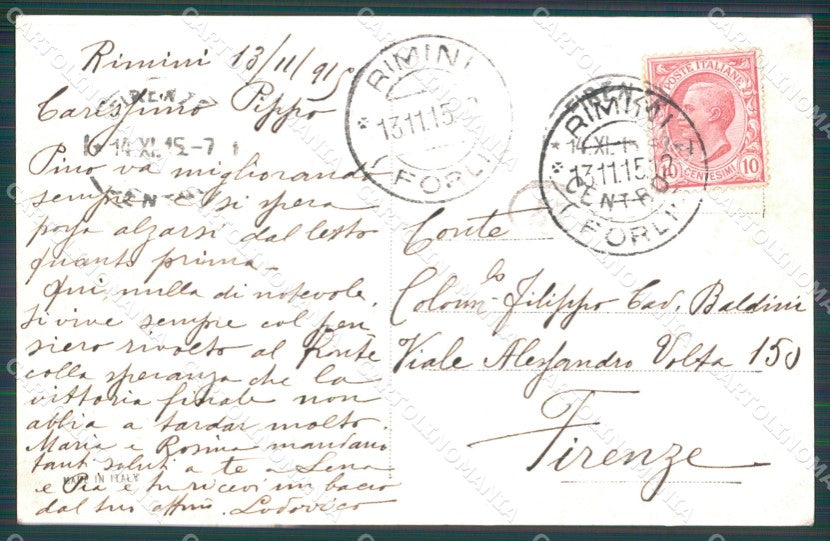 Rimini 13/11/915
Carissimo Pippo
Pino va migliorando
sempre e si spera
possa alzarsi dal letto
quanto prima.
Qui nulla di notevole.
Si vive sempre col pen-
siero rivolto al fronte
colla speranza che la
vittoria finale non
abbia a tardar molto.
Maria e Rosina mandano
tanti saluti a te a Lena
e Pia e tu ricevi un bacio
dal tuo affmo. Lodovico
MADE IN ITALY
FIRENZE
14 XI. 15-7
CENTRO
RIMINI
13.11.15
(FORLI)
FIRENZE
14 XI. 15
CENTRO
RIMINI
13.11.15
(FORLI)
POSTE ITALIANE
10 CENTESIMI 10
Conte
Colonnlo Filippo Cav. Baldini
Viale Alessandro Volta 150
Firenze
CARTOLINOMANIA